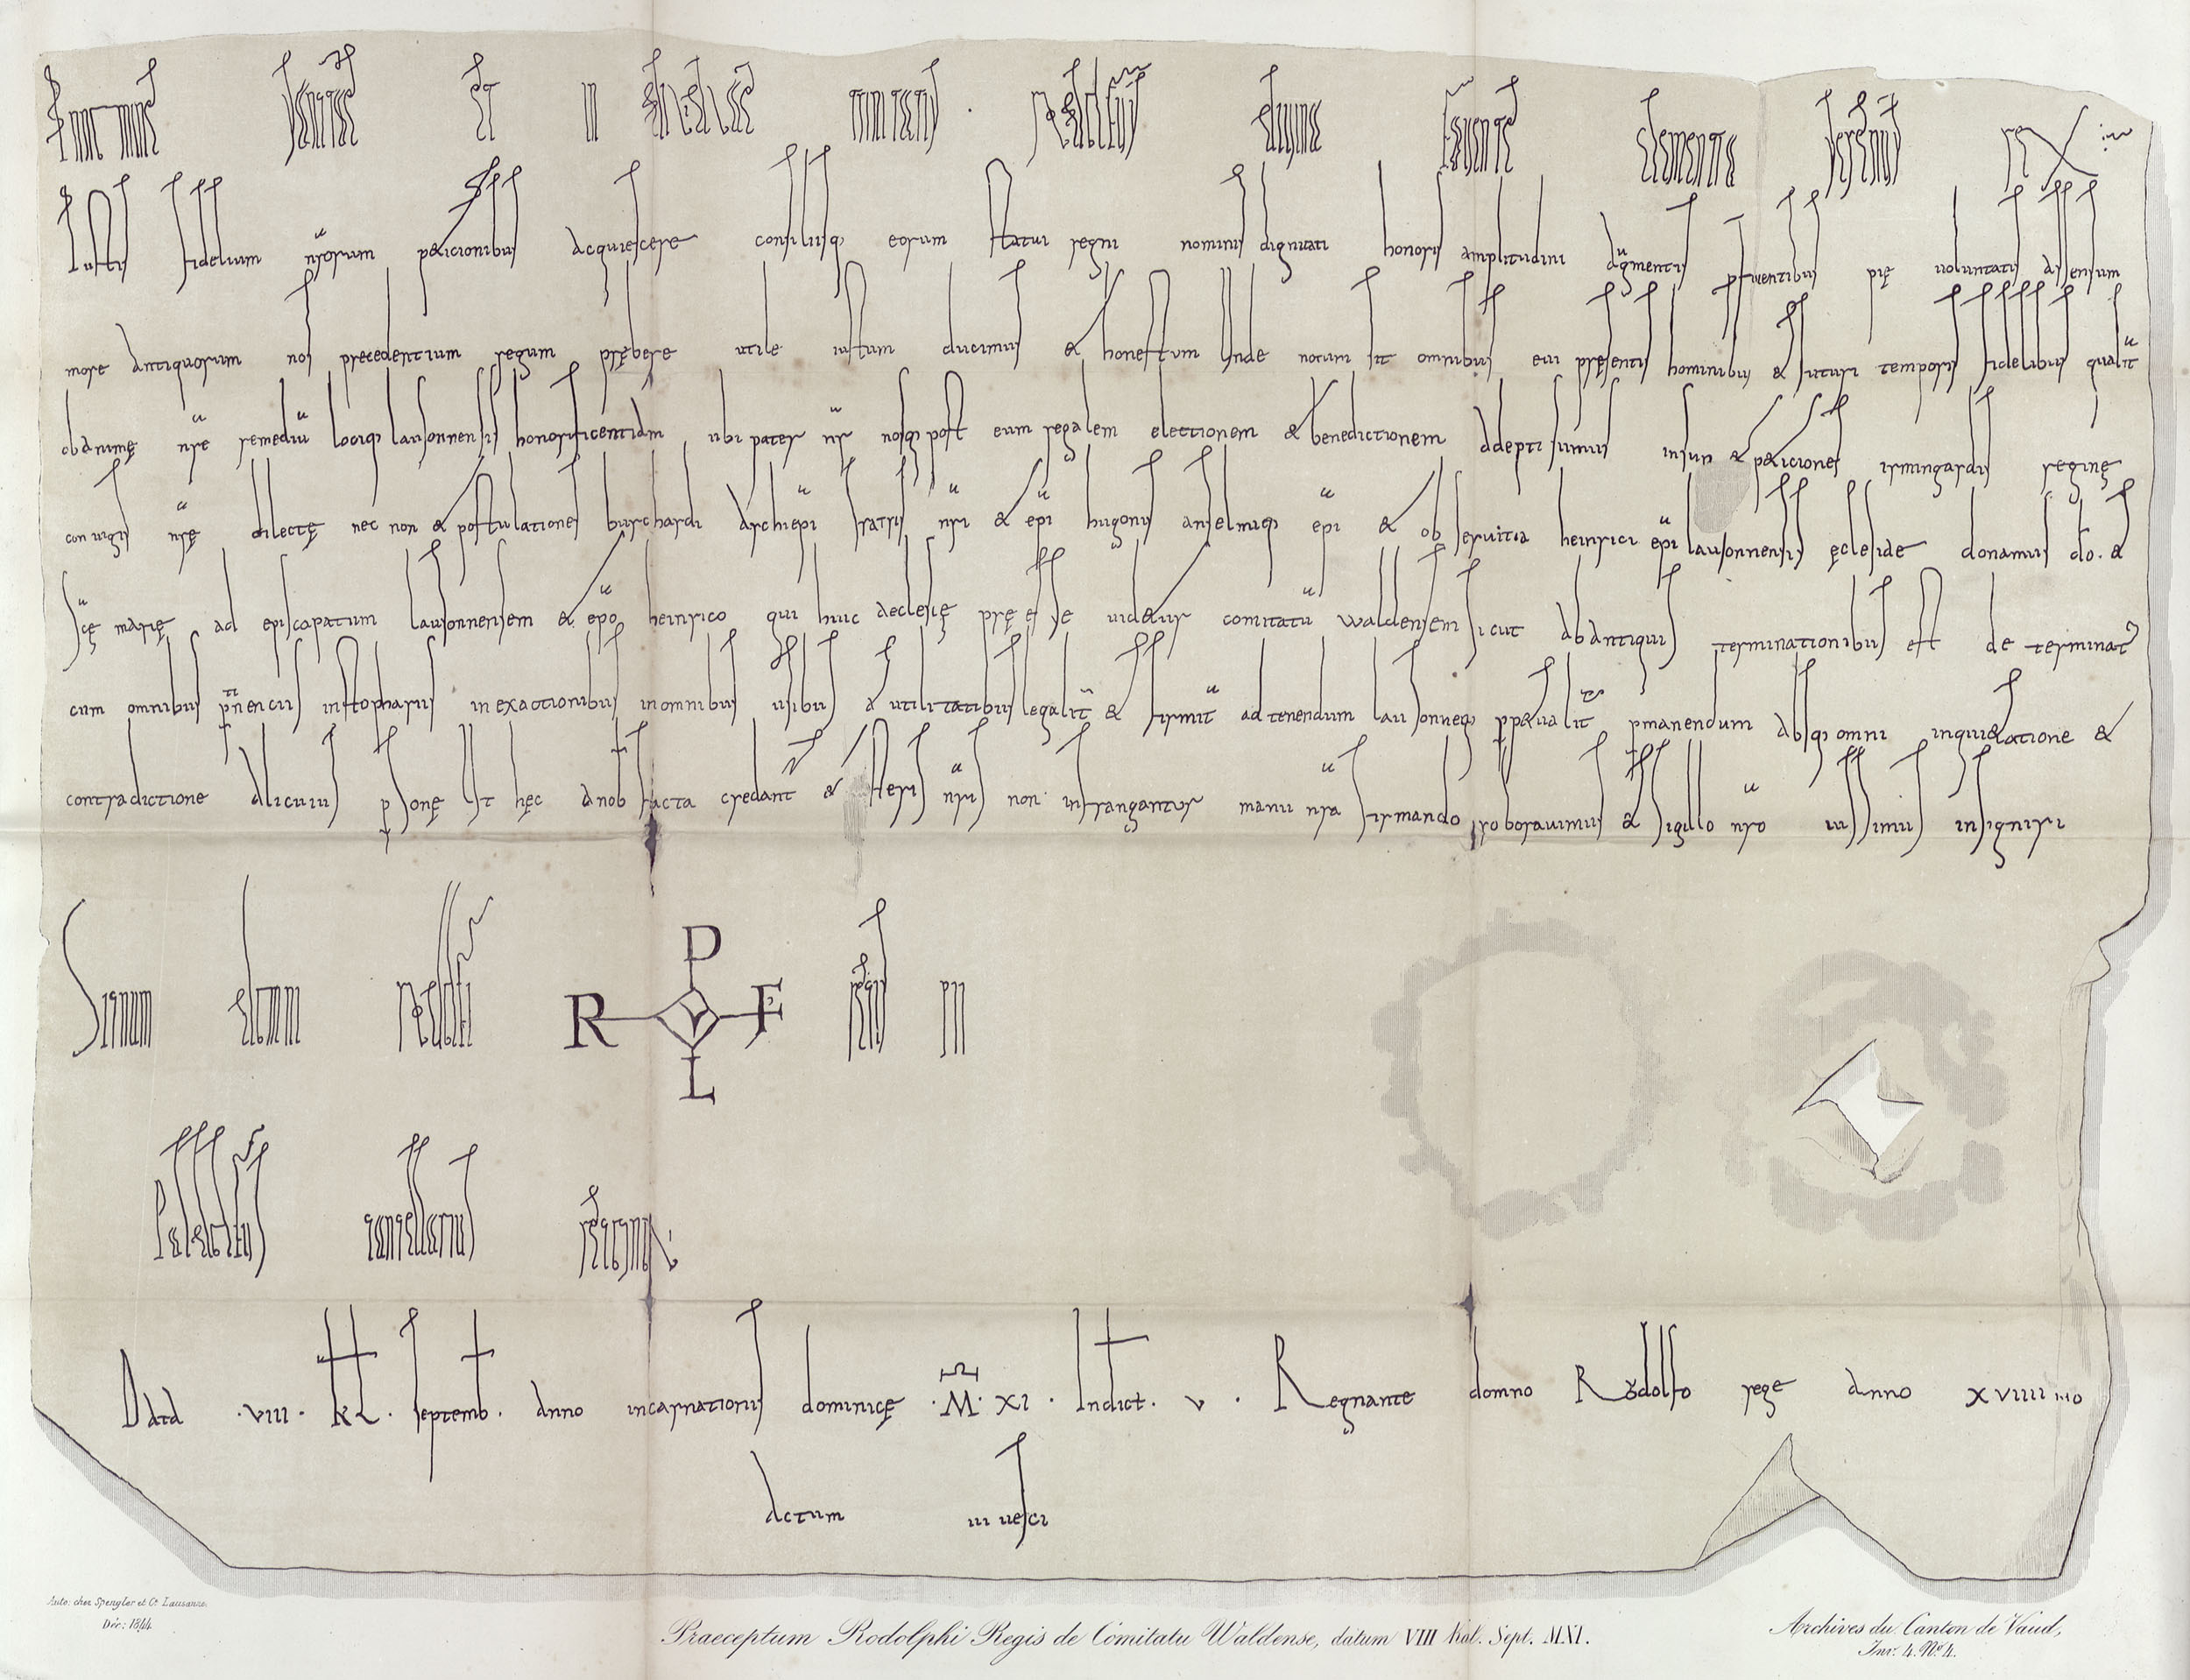 In nomine sanctę et individuę trinitatis . Rodulfus divina favente clementia serenus rex
Iustis fidelium nrorum p&icionibus adquiescere consiliisq; eorum statui regni nominis dignitati honoris amplitudini augmentis pfuentibus pię voluntatis assensum
more antiquorum nos precedentium regum prębere utile iustum ducimus & honestum Unde notum sit omnibus eui pręsentis hominibus & futuri temporis fidelibus qualit
ob animę nrę remediu lociq; lausonnensis honorificentiam ubi pater nr nosq; post eum regalem electionem & benedictionem adepti sumus insup & p&iciones irmingardis reginę
coniugis nrę dilectę nec non & postulationes burchardi archiepi fratris nri & epi hugonis anselmiq; epi & ob seruitia heinrici epi lausonnensis ęclesiae donamus do. &
Scę marię ad episcopatum lausonnensem & epo heinrico qui huic aeclesię pręesse uid&ur comitatu waldensem sicut ab antiquis terminationibus est de terminat
cum omnibus ptinenciis in stophariis in exactionibus in omnibus usibus a utilitatibus legalit & firmit ad tenendum lausonneq; pp&ualit pmanendum absq; omni inqui&atione &
contradictione alicuius psonę Ut hęc a nob facta credant & posteris nris non infrangantur manu nra firmando roborauimus & sigillo nro iussimus insigniri
Signum domni Rodulfi R P V F L regis pii
Padolfus cancellarius recognovi
Data . VIII . KL . septemb . anno incarnationis dominicę . M . XI . Indict . v . Regnante domno Rodolfo rege anno xviiii mo
actum in uesci
Auto: chez Spengler et Ce Lausanne.
Déc: 1844.
Praeceptum Rodolphi Regis de Comitatu Waldense, datum VIII Kal. Sept. MXI.
Archives du Canton de Vaud,
Inv. 4. No 4.